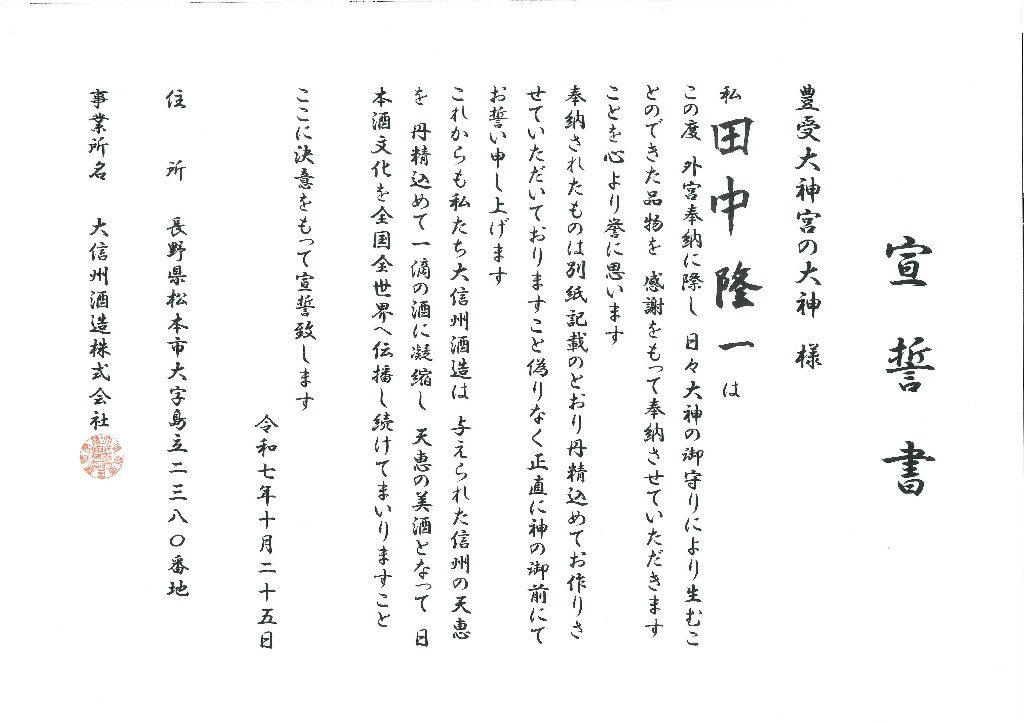 宣誓書
豊受大神宮の大神 様
私 田中隆一 は
この度 外宮奉納に際し 日々大神の御守りにより生むこ
とのできた品物を 感謝をもって奉納させていただきます
ことを心より誉に思います
奉納されたものは別紙記載のとおり丹精込めてお作りさ
せていただいておりますこと偽りなく正直に神の御前にて
お誓い申し上げます
これからも私たち大信州酒造は 与えられた信州の天恵
を 丹精込めて一滴の酒に凝縮し 天恵の美酒となって 日
本酒文化を全国全世界へ伝播し続けてまいりますこと
ここに決意をもって宣誓致します
令和七年十月二十五日
住所 長野県松本市大字島立二三八〇番地
事業所名 大信州酒造株式会社